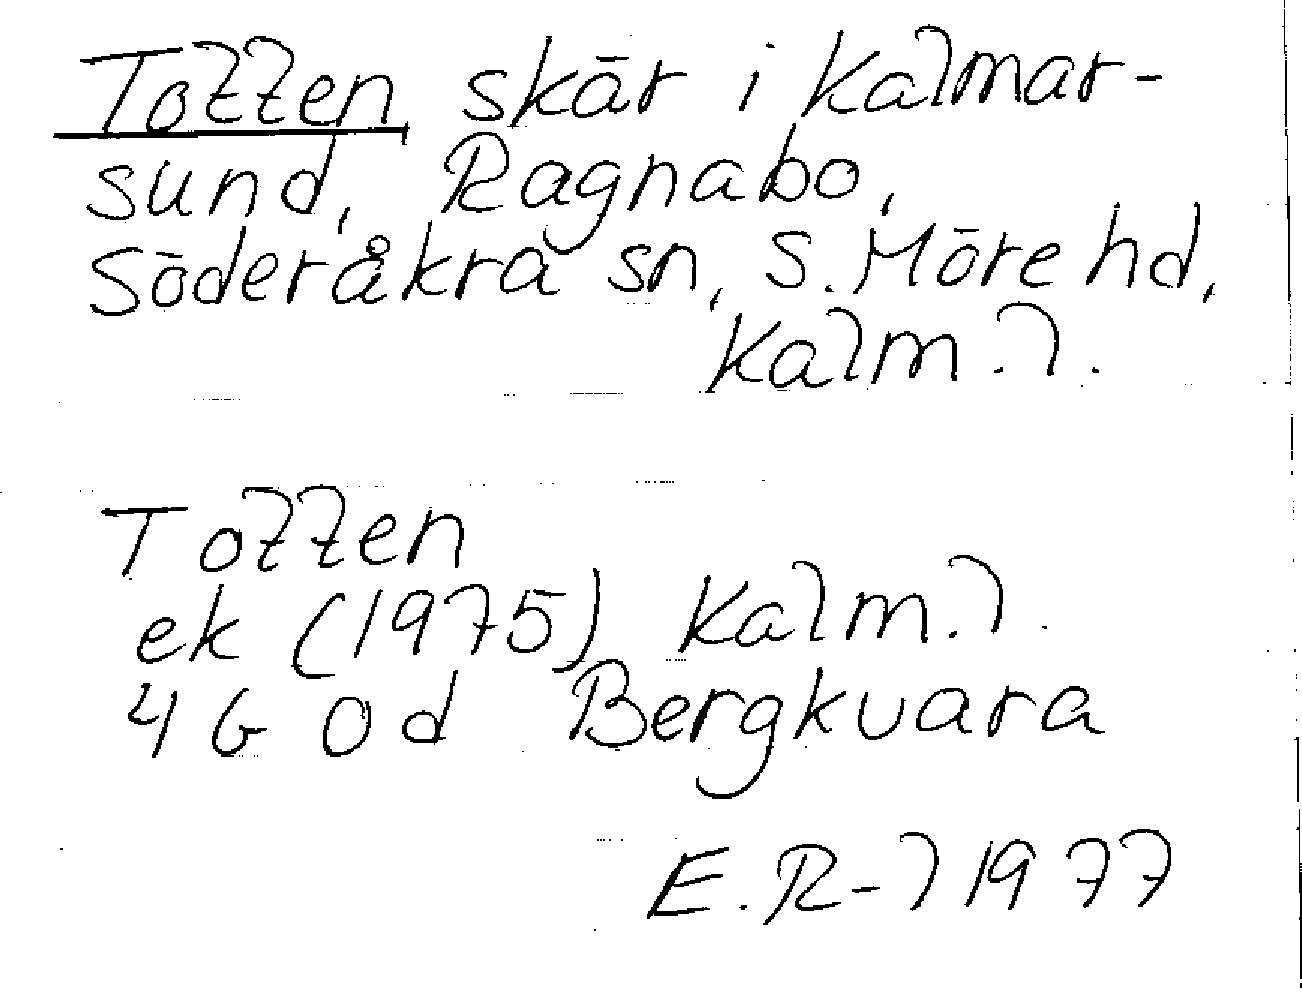 Totten skär i Kalmar-
sund, Ragnabo,
Söderåkra sn, S. Möre hd,
Kalm. l.
Totten
ek (1975) Kalm. l.
4G 0d Bergkvara
E. R-l 1977